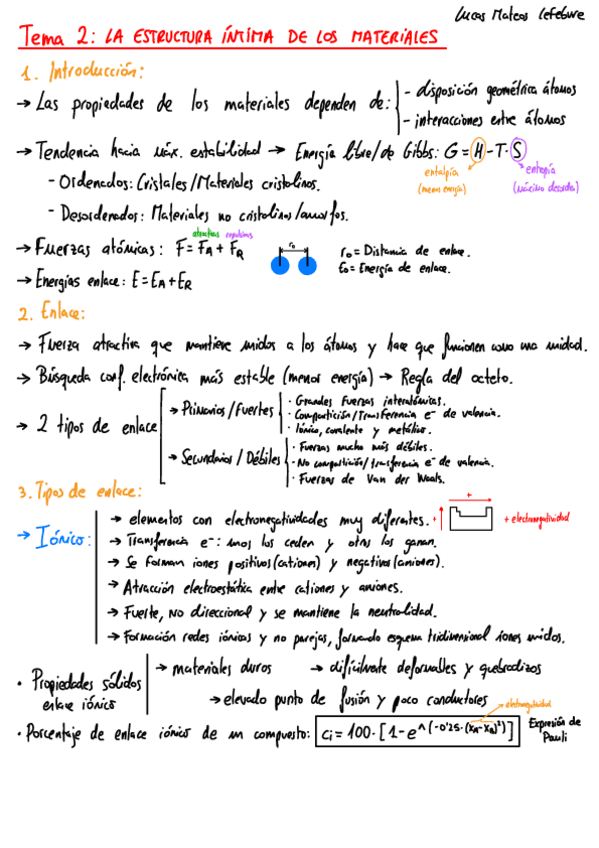 Lucas Mateos Lefebvre
Tema 2: LA ESTRUCTURA ÍNTIMA DE LOS MATERIALES
1. Introducción:
→ Las propiedades de los materiales dependen de: - disposición geométrica átomos
- interacciones entre átomos
→ Tendencia hacia máx. estabilidad → Energía libre/do Gibbs: G = H - T · S
entalpía (menor energía)
entropía (máximo desorden)
- Ordenados: Cristales/Materiales cristalinos.
- Desordenados: Materiales no cristalinos/amorfos.
atractivas repulsivas
→ Fuerzas atómicas: F = FA + FR
r₀
r₀ = Distancia de enlace.
E₀ = Energía de enlace.
→ Energías enlace: E = EA + ER
2. Enlace:
→ Fuerza atractiva que mantiene unidos a los átomos y hace que funcionen como una unidad.
→ Búsqueda conf. electrónica más estable (menor energía) → Regla del octeto.
→ 2 tipos de enlace
→ Primarios/Fuertes
· Grandes fuerzas interatómicas.
· Compartición/Transferencia e⁻ de valencia.
· Iónico, covalente y metálico.
→ Secundarios/Débiles
· Fuerzas mucho más débiles.
· No compartición/transferencia e⁻ de valencia.
· Fuerzas de Van der Waals.
3. Tipos de enlace:
→ Iónico:
→ elementos con electronegatividades muy diferentes. + + + electronegatividad
→ Transferencia e⁻: unos los ceden y otros los ganan.
→ Se forman iones positivos (cationes) y negativos (aniones).
→ Atracción electroestática entre cationes y aniones.
→ Fuerte, no direccional y se mantiene la neutralidad.
→ Formación redes iónicas y no parejas, formando esquema tridimensional iones unidos.
· Propiedades sólidos enlace iónico
→ materiales duros → difícilmente deformables y quebradizos
→ elevado punto de fusión y poco conductores
electronegatividad
· Porcentaje de enlace iónico de un compuesto: ci = 100 · [1 - e^(-0'25 · (XA - XB)²)] Expresión de Pauli